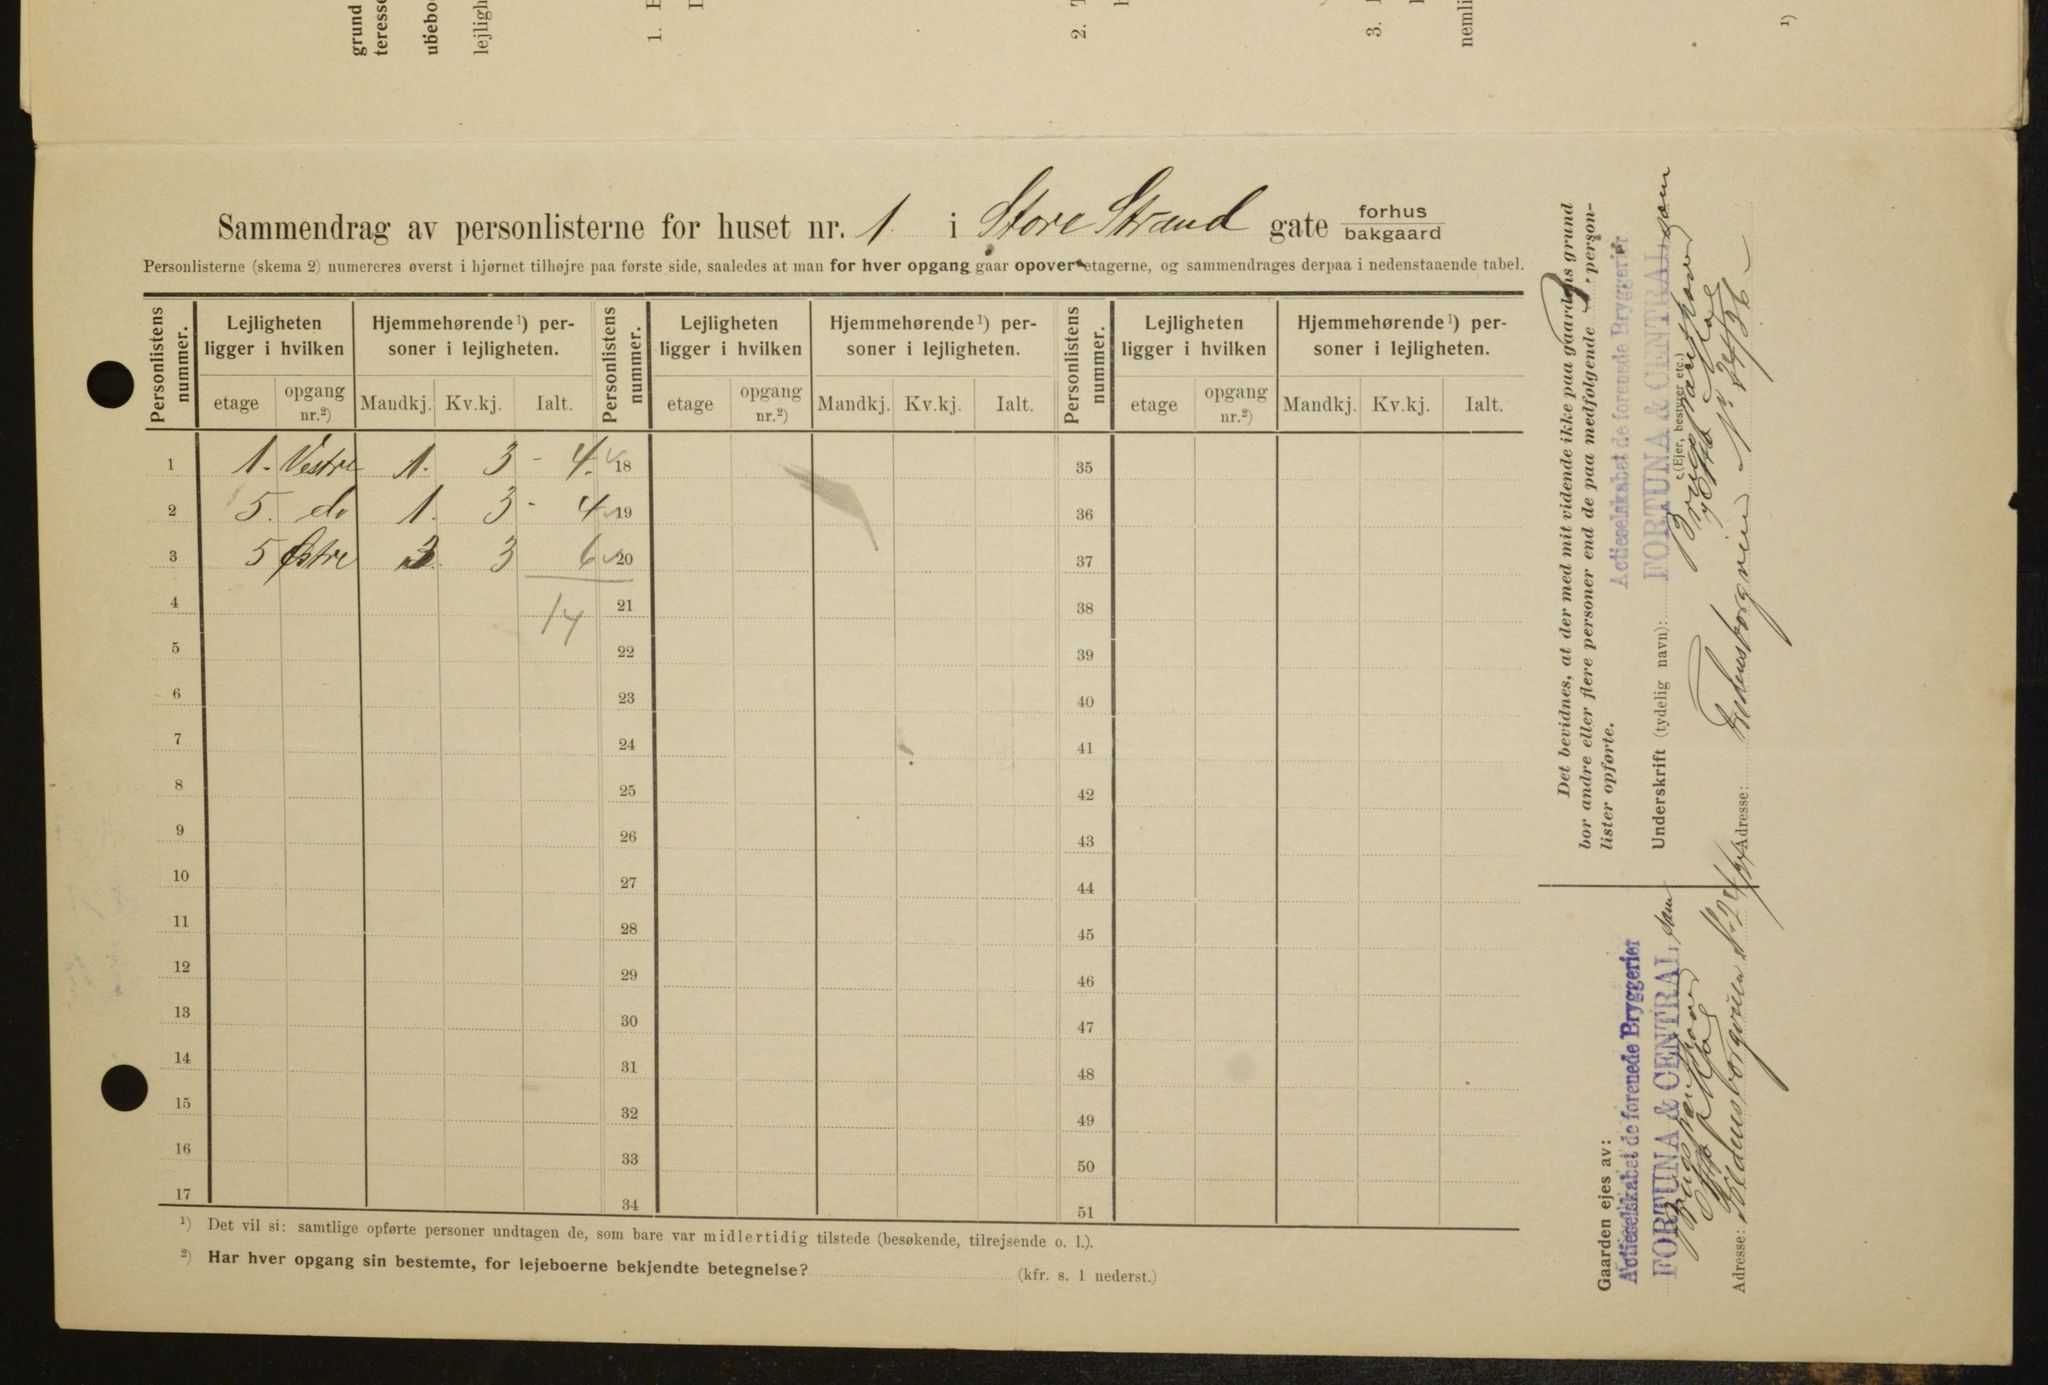 grund
teresse
ubebo
lejligh
1.
2.
3.
nemli
1)
Sammendrag av personlisterne for huset nr. 1 i Store Strand gate forhus bakgaard
Personlisterne (skema 2) numereres øverst i hjørnet tilhøjre paa første side, saaledes at man for hver opgang gaar opover etagerne, og sammendrages derpaa i nedenstaaende tabel.
Personlistens nummer. Lejligheten ligger i hvilken Hjemmehørende 1) personer i lejligheten. Personlistens nummer. Lejligheten ligger i hvilken Hjemmehørende 1) personer i lejligheten. Personlistens nummer. Lejligheten ligger i hvilken Hjemmehørende 1) personer i lejligheten.
etage opgang nr.2) Mandkj. Kv.kj. Ialt. etage opgang nr.2) Mandkj. Kv.kj. Ialt. etage opgang nr.2) Mandkj. Kv.kj. Ialt.
1 1. Vestre 1. 3 - 4. 18 35
2 5. do 1. 3 - 4 19 36
3 5 Østre 3 3 6 20 37
4 14 21 38
5 22 39
6 23 40
7 24 41
8 25 42
9 26 43
10 27 44
11 28 45
12 29 46
13 30 47
14 31 48
15 32 49
16 33 50
17 34 51
1) Det vil si: samtlige opførte personer undtagen de, som bare var midlertidig tilstede (besøkende, tilrejsende o. l.).
2) Har hver opgang sin bestemte, for lejeboerne bekjendte betegnelse? (kfr. s. 1 nederst.)
Det bevidnes, at der med mit vidende ikke paa gaardens grund
bor andre eller flere personer end de paa medfølgende 3 person-
lister opførte.
Actieselskabet de forenede Bryggerier
FORTUNA & CENTRAL
Underskrift (tydelig navn):
(Ejer, bestyrer etc.)
Adresse: Fredensborgveien No 24/26
Gaarden ejes av:
Actieselskabet de forenede Bryggerier
FORTUNA & CENTRAL
Adresse: Fredensborgveien No 24/26